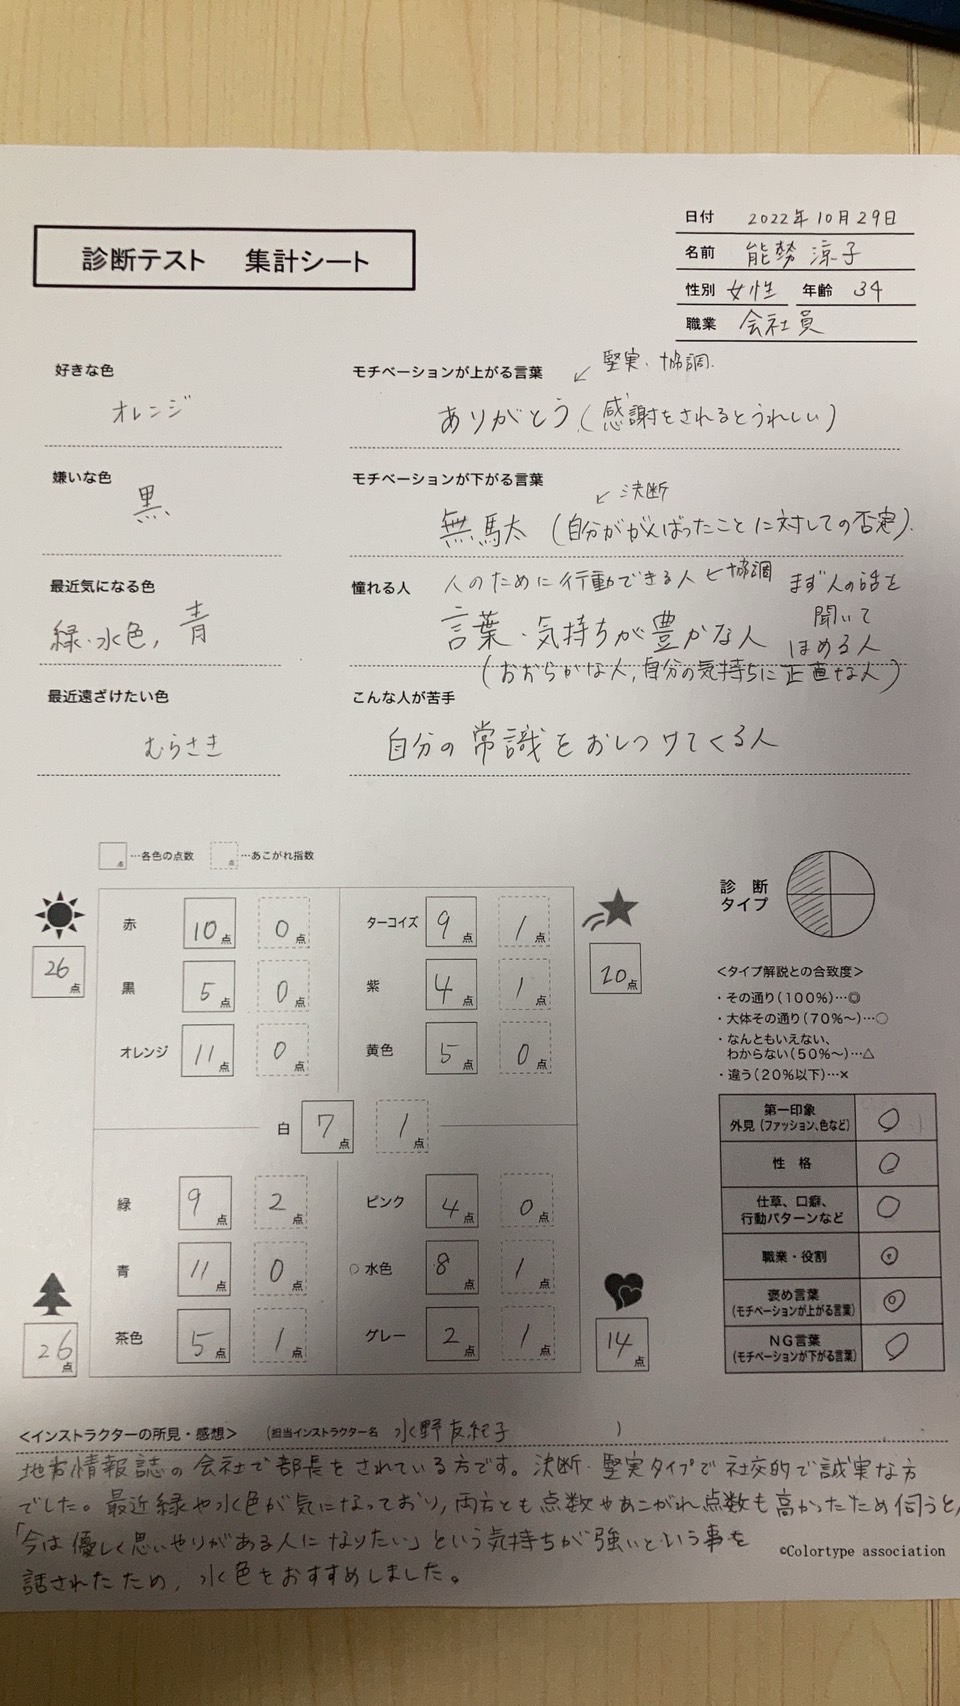 診断テスト 集計シート
日付 2022年10月29日
名前 能勢 涼子
性別 女性 年齢 34
職業 会社員
好きな色
オレンジ
モチベーションが上がる言葉
↙ 堅実・協調
ありがとう(感謝をされるとうれしい)
嫌いな色
黒
モチベーションが下がる言葉
↙ 決断
無駄(自分ががんばったことに対しての否定)
最近気になる色
緑・水色, 青
憧れる人
人のために行動できる人 ← 協調
言葉・気持ちが豊かな人
(おおらかな人,自分の気持ちに正直な人)
まず人の話を
聞いて
ほめる人
最近遠ざけたい色
むらさき
こんな人が苦手
自分の常識をおしつけてくる人
点 …各色の点数 点 …あこがれ指数
26点
赤 10点 0点
黒 5点 0点
オレンジ 11点 0点
ターコイズ 9点 1点
紫 4点 1点
黄色 5点 0点
20点
白 7点 1点
緑 9点 2点
青 11点 0点
茶色 5点 1点
26点
ピンク 4点 0点
○水色 8点 1点
グレー 2点 1点
14点
診断
タイプ
<タイプ解説との合致度>
・その通り(100%)…◎
・大体その通り(70%~)…○
・なんともいえない、
わからない(50%~)…△
・違う(20%以下)…×
第一印象
外見(ファッション、色など) ○
性格 ○
仕草、口癖、
行動パターンなど ○
職業・役割 ◎
褒め言葉
(モチベーションが上がる言葉) ◎
NG言葉
(モチベーションが下がる言葉) ○
<インストラクターの所見・感想> (担当インストラクター名 水野友紀子 )
地方情報誌の会社で部長をされている方です。決断・堅実タイプで社交的で誠実な方
でした。最近緑や水色が気になっており,両方とも点数やあこがれ点数も高かったため伺うと,
「今は優しく思いやりがある人になりたい」という気持ちが強いという事を
話されたため,水色をおすすめしました。
©Colortype association